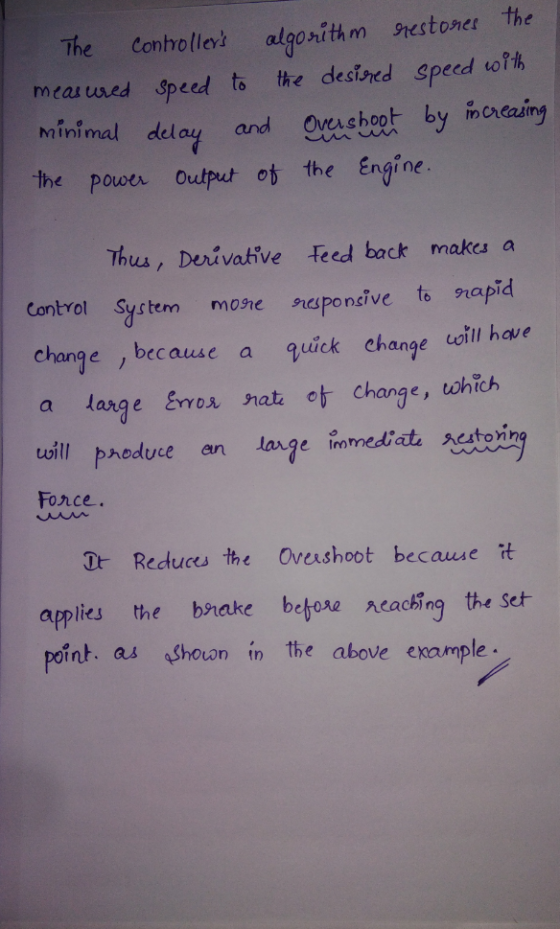 The Controller's algorithm restores the
measured speed to the desired speed with
minimal delay and Overshoot by increasing
the power Output of the Engine.
Thus, Derivative Feed back makes a
Control System more responsive to rapid
change, because a quick change will have
a large Error rate of change, which
will produce an large immediate restoring
Force.
It Reduces the Overshoot because it
applies the brake before reaching the set
point. as shown in the above example.